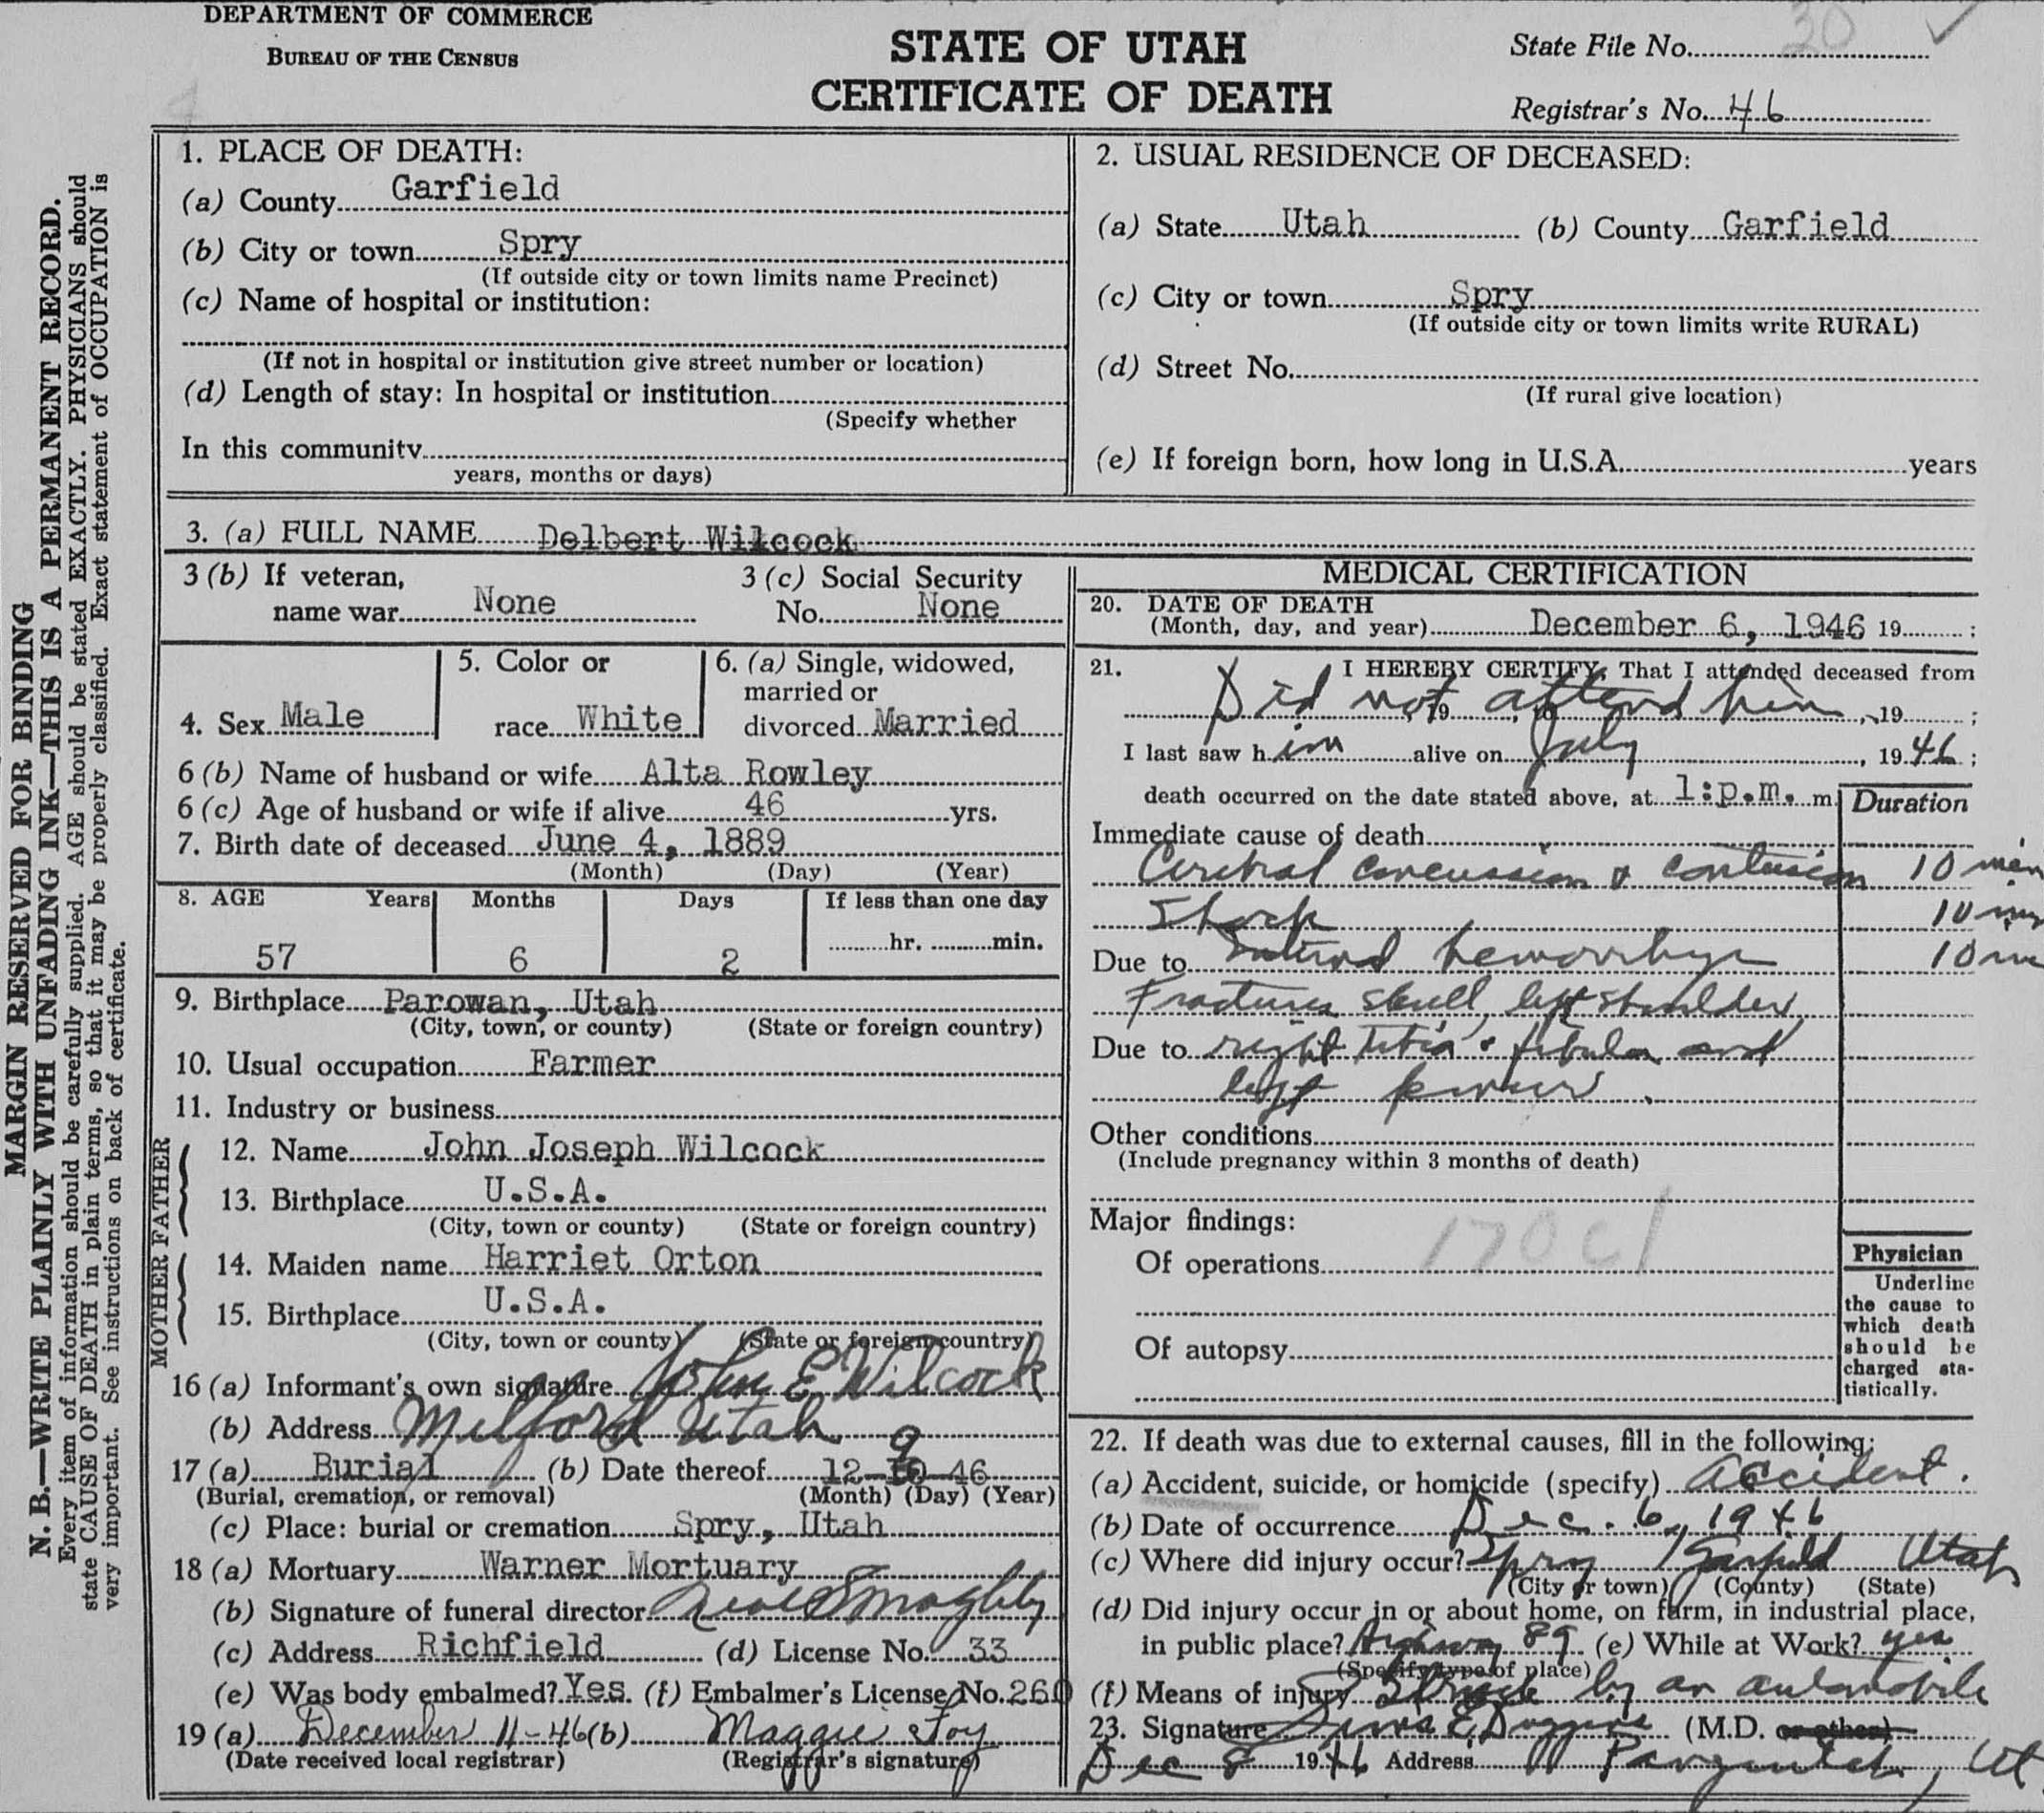 DEPARTMENT OF COMMERCE
BUREAU OF THE CENSUS
STATE OF UTAH
CERTIFICATE OF DEATH
State File No. 30
Registrar's No. 46
MARGIN RESERVED FOR BINDING
N. B.—WRITE PLAINLY WITH UNFADING INK—THIS IS A PERMANENT RECORD.
Every item of information should be carefully supplied. AGE should be stated EXACTLY. PHYSICIANS should
state CAUSE OF DEATH in plain terms, so that it may be properly classified. Exact statement of OCCUPATION is
very important. See instructions on back of certificate.
1. PLACE OF DEATH:
(a) County Garfield
(b) City or town Spry
(If outside city or town limits name Precinct)
(c) Name of hospital or institution:
(If not in hospital or institution give street number or location)
(d) Length of stay: In hospital or institution
(Specify whether
In this community
years, months or days)
2. USUAL RESIDENCE OF DECEASED:
(a) State Utah (b) County Garfield
(c) City or town Spry
(If outside city or town limits write RURAL)
(d) Street No.
(If rural give location)
(e) If foreign born, how long in U.S.A. years
3. (a) FULL NAME Delbert Wilcock
3 (b) If veteran, name war None
3 (c) Social Security No. None
4. Sex Male
5. Color or race White
6. (a) Single, widowed, married or divorced Married
6 (b) Name of husband or wife Alta Rowley
6 (c) Age of husband or wife if alive 46 yrs.
7. Birth date of deceased June 4, 1889
(Month) (Day) (Year)
8. AGE Years Months Days If less than one day
57 6 2 hr. min.
9. Birthplace Parowan, Utah
(City, town, or county) (State or foreign country)
10. Usual occupation Farmer
11. Industry or business
FATHER
12. Name John Joseph Wilcock
13. Birthplace U.S.A.
(City, town or county) (State or foreign country)
MOTHER
14. Maiden name Harriet Orton
15. Birthplace U.S.A.
(City, town or county) (State or foreign country)
16 (a) Informant's own signature John E Wilcock
(b) Address Milford Utah
17 (a) Burial (b) Date thereof 12-9-46
(Burial, cremation, or removal) (Month) (Day) (Year)
(c) Place: burial or cremation Spry, Utah
18 (a) Mortuary Warner Mortuary
(b) Signature of funeral director
(c) Address Richfield (d) License No. 33
(e) Was body embalmed? Yes. (f) Embalmer's License No. 260
19 (a) December 11-46 (b) Maggie Foy
(Date received local registrar) (Registrar's signature)
MEDICAL CERTIFICATION
20. DATE OF DEATH
(Month, day, and year) December 6, 1946 19 ;
21. I HEREBY CERTIFY, That I attended deceased from
Did not attend him , 19 , to , 19 ;
I last saw h im alive on July , 19 46 ;
death occurred on the date stated above, at 1:p.m. m.
Duration
Immediate cause of death
Cerebral concussion & contusion 10 min
Shock 10 min
Due to Internal hemorrhage 10 m
Fractures skull, left shoulder,
Due to right tibia & fibula and
left femur.
Other conditions
(Include pregnancy within 3 months of death)
Major findings:
170c1
Of operations
Of autopsy
Physician
Underline
the cause to
which death
should be
charged sta-
tistically.
22. If death was due to external causes, fill in the following:
(a) Accident, suicide, or homicide (specify) Accident.
(b) Date of occurrence Dec. 6, 1946
(c) Where did injury occur? Spry Garfield Utah
(City or town) (County) (State)
(d) Did injury occur in or about home, on farm, in industrial place,
in public place? Highway 89 (e) While at Work? yes
(Specify type of place)
(f) Means of injury Struck by an automobile
23. Signature Sims E Duggins (M.D. or other)
Dec 8 1946 Address Panguitch, Ut